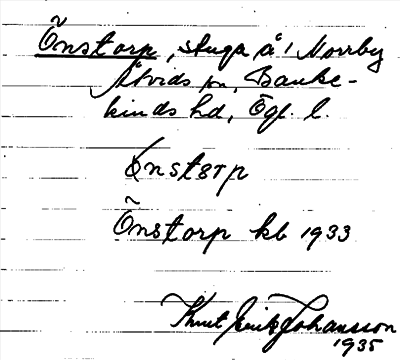 Önstorp, stuga å 1 Norrby
Åtvids sn, Banke-
kinds hd, Ögl. l.
Önstɛrp
Önstorp kb 1933
Knut Erik Johansson
1935